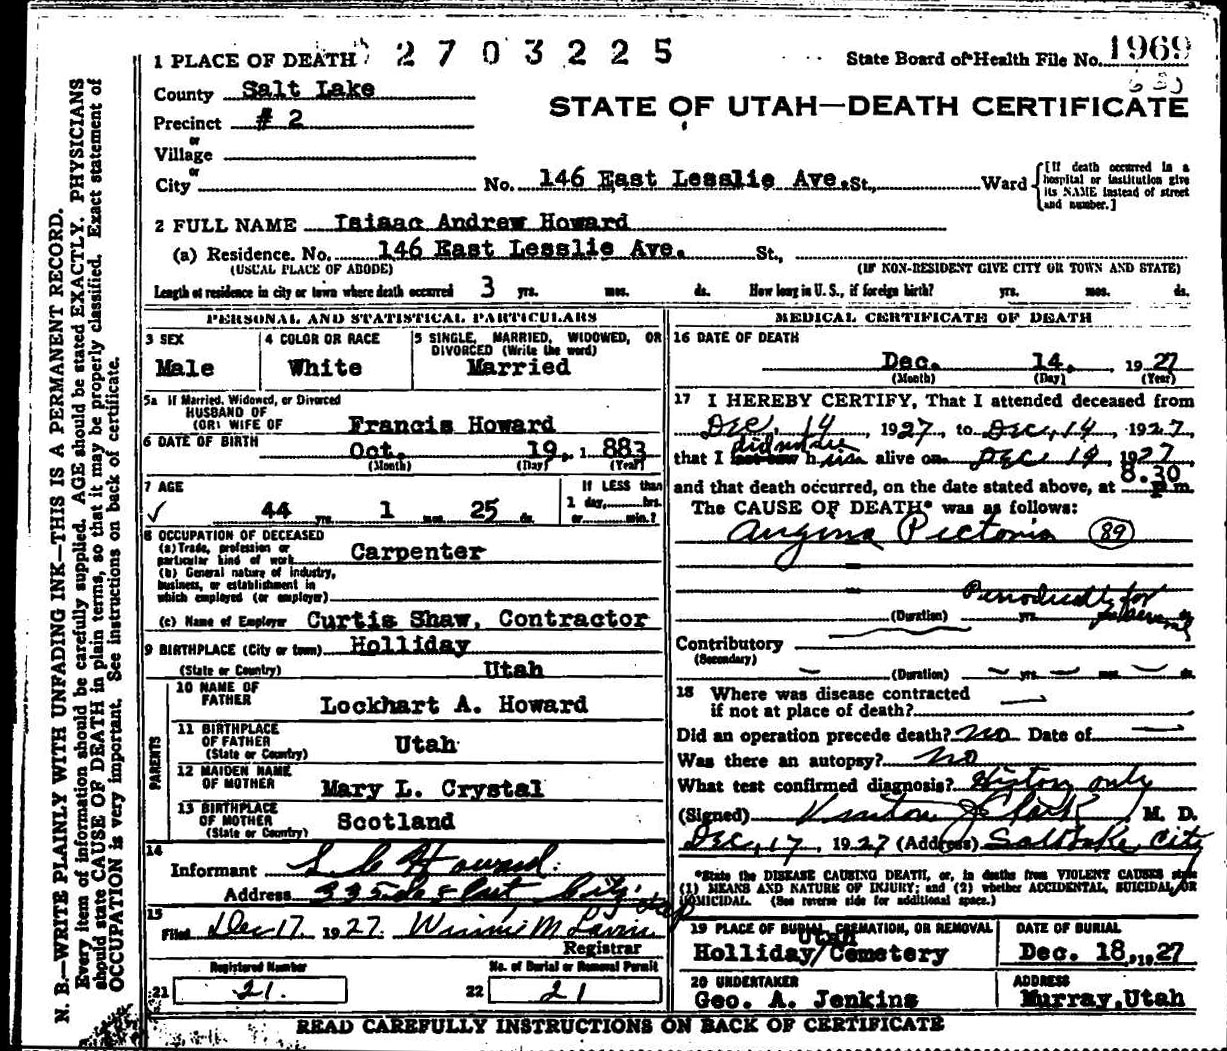 1 PLACE OF DEATH 2 7 0 3 2 2 5
State Board of Health File No. 1969
County Salt Lake
STATE OF UTAH—DEATH CERTIFICATE
Precinct # 2
or
Village
or
City No. 146 East Lesslie Ave. St., Ward
[If death occurred in a hospital or institution give its NAME instead of street and number.]
2 FULL NAME Isiaac Andrew Howard
(a) Residence. No. 146 East Lesslie Ave. St.,
(USUAL PLACE OF ABODE) (IF NON-RESIDENT GIVE CITY OR TOWN AND STATE)
Length of residence in city or town where death occurred 3 yrs. mos. ds. How long in U. S., if foreign birth? yrs. mos. ds.
PERSONAL AND STATISTICAL PARTICULARS
3 SEX Male
4 COLOR OR RACE White
5 SINGLE, MARRIED, WIDOWED, OR DIVORCED (Write the word) Married
5a If Married, Widowed, or Divorced
HUSBAND OF
(OR) WIFE OF Francis Howard
6 DATE OF BIRTH Oct. 19, 1 883
(Month) (Day) (Year)
7 AGE 44 yrs. 1 mos. 25 ds.
If LESS than 1 day, hrs. or min.?
8 OCCUPATION OF DECEASED
(a) Trade, profession or particular kind of work Carpenter
(b) General nature of industry, business, or establishment in which employed (or employer)
(c) Name of Employer Curtis Shaw, Contractor
9 BIRTHPLACE (City or town) Holliday
(State or Country) Utah
PARENTS
10 NAME OF FATHER Lockhart A. Howard
11 BIRTHPLACE OF FATHER (State or Country) Utah
12 MAIDEN NAME OF MOTHER Mary L. Crystal
13 BIRTHPLACE OF MOTHER (State or Country) Scotland
14
Informant Howard.
Address City
15
Filed Dec 17. 1927. Winnie M
Registrar
Registered Number
21 21.
No. of Burial or Removal Permit
22 21
MEDICAL CERTIFICATE OF DEATH
16 DATE OF DEATH
Dec. 14. , 19 27
(Month) (Day) (Year)
17 I HEREBY CERTIFY, That I attended deceased from
Dec. 14, 1927, to Dec, 14, 1927,
that I last saw him alive on Dec 14, 1927,
and that death occurred, on the date stated above, at 8.30 p.m.
The CAUSE OF DEATH* was as follows:
Angina Pectoris (89)
Periodically for
(Duration) yrs.
Contributory
(Secondary)
(Duration) yrs. mos. ds.
18 Where was disease contracted
if not at place of death?
Did an operation precede death? No Date of
Was there an autopsy? No
What test confirmed diagnosis? History only
(Signed) Clark, M. D.
Dec, 17, 1927 (Address) Salt Lake City
*State the DISEASE CAUSING DEATH, or, in deaths from VIOLENT CAUSES state
(1) MEANS AND NATURE OF INJURY; and (2) whether ACCIDENTAL, SUICIDAL, OR
HOMICIDAL. (See reverse side for additional space.)
19 PLACE OF BURIAL, CREMATION, OR REMOVAL
Utah
Holliday/Cemetery
DATE OF BURIAL
Dec. 18,, 19 27
20 UNDERTAKER
Geo. A. Jenkins
ADDRESS
Murray, Utah
READ CAREFULLY INSTRUCTIONS ON BACK OF CERTIFICATE
N. B.—WRITE PLAINLY WITH UNFADING INK—THIS IS A PERMANENT RECORD.
Every item of information should be carefully supplied. AGE should be stated EXACTLY. PHYSICIANS
should state CAUSE OF DEATH in plain terms, so that it may be properly classified. Exact statement of
OCCUPATION is very important. See instructions on back of certificate.